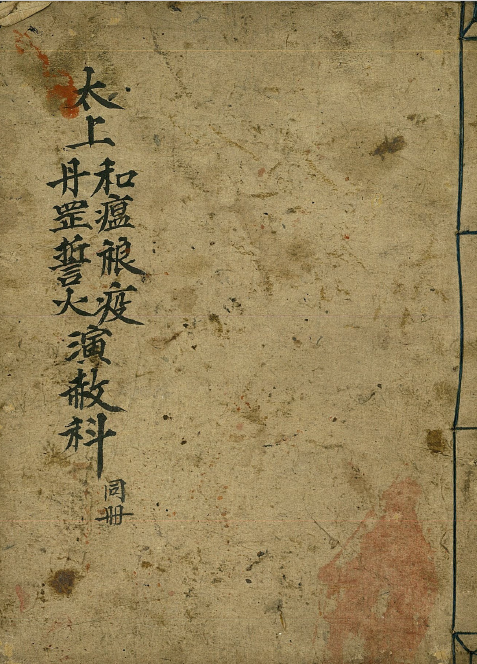 太上
和瘟禳疫
丹罡誓火
演赦科
同冊